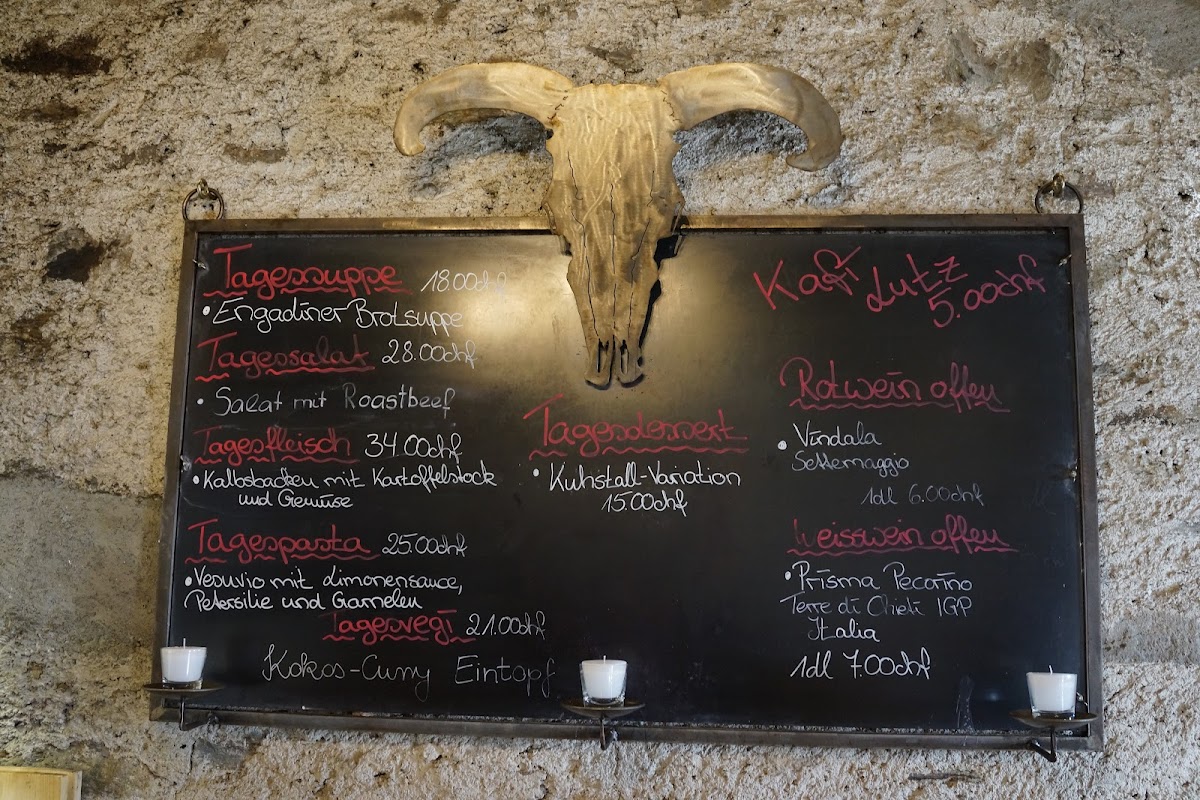 Tagessuppe 18.00chf
• Engadiner Brotsuppe
Tagessalat 28.00chf
• Salat mit Roastbeef
Tagesfleisch 34.00chf
• Kalbsbacken mit Kartoffelstock
und Gemüse
Tagespasta 25.00chf
• Vesuvio mit Limonensauce,
Petersilie und Garnelen
Tagesvegi 21.00chf
Kokos-Curry Eintopf
Tagesdessert
• Kuhstall-Variation
15.00chf
Kafi Lutz
5.00chf
Rotwein offen
• Vindala
Settemaggio
1dl 6.00chf
Weisswein offen
• Prisma Pecorino
Terre di Chieti IGP
Italia
1dl 7.00chf